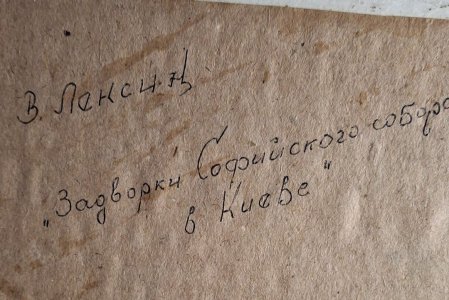 В. Лексин
"Задворки Софийского собора
в Киеве"